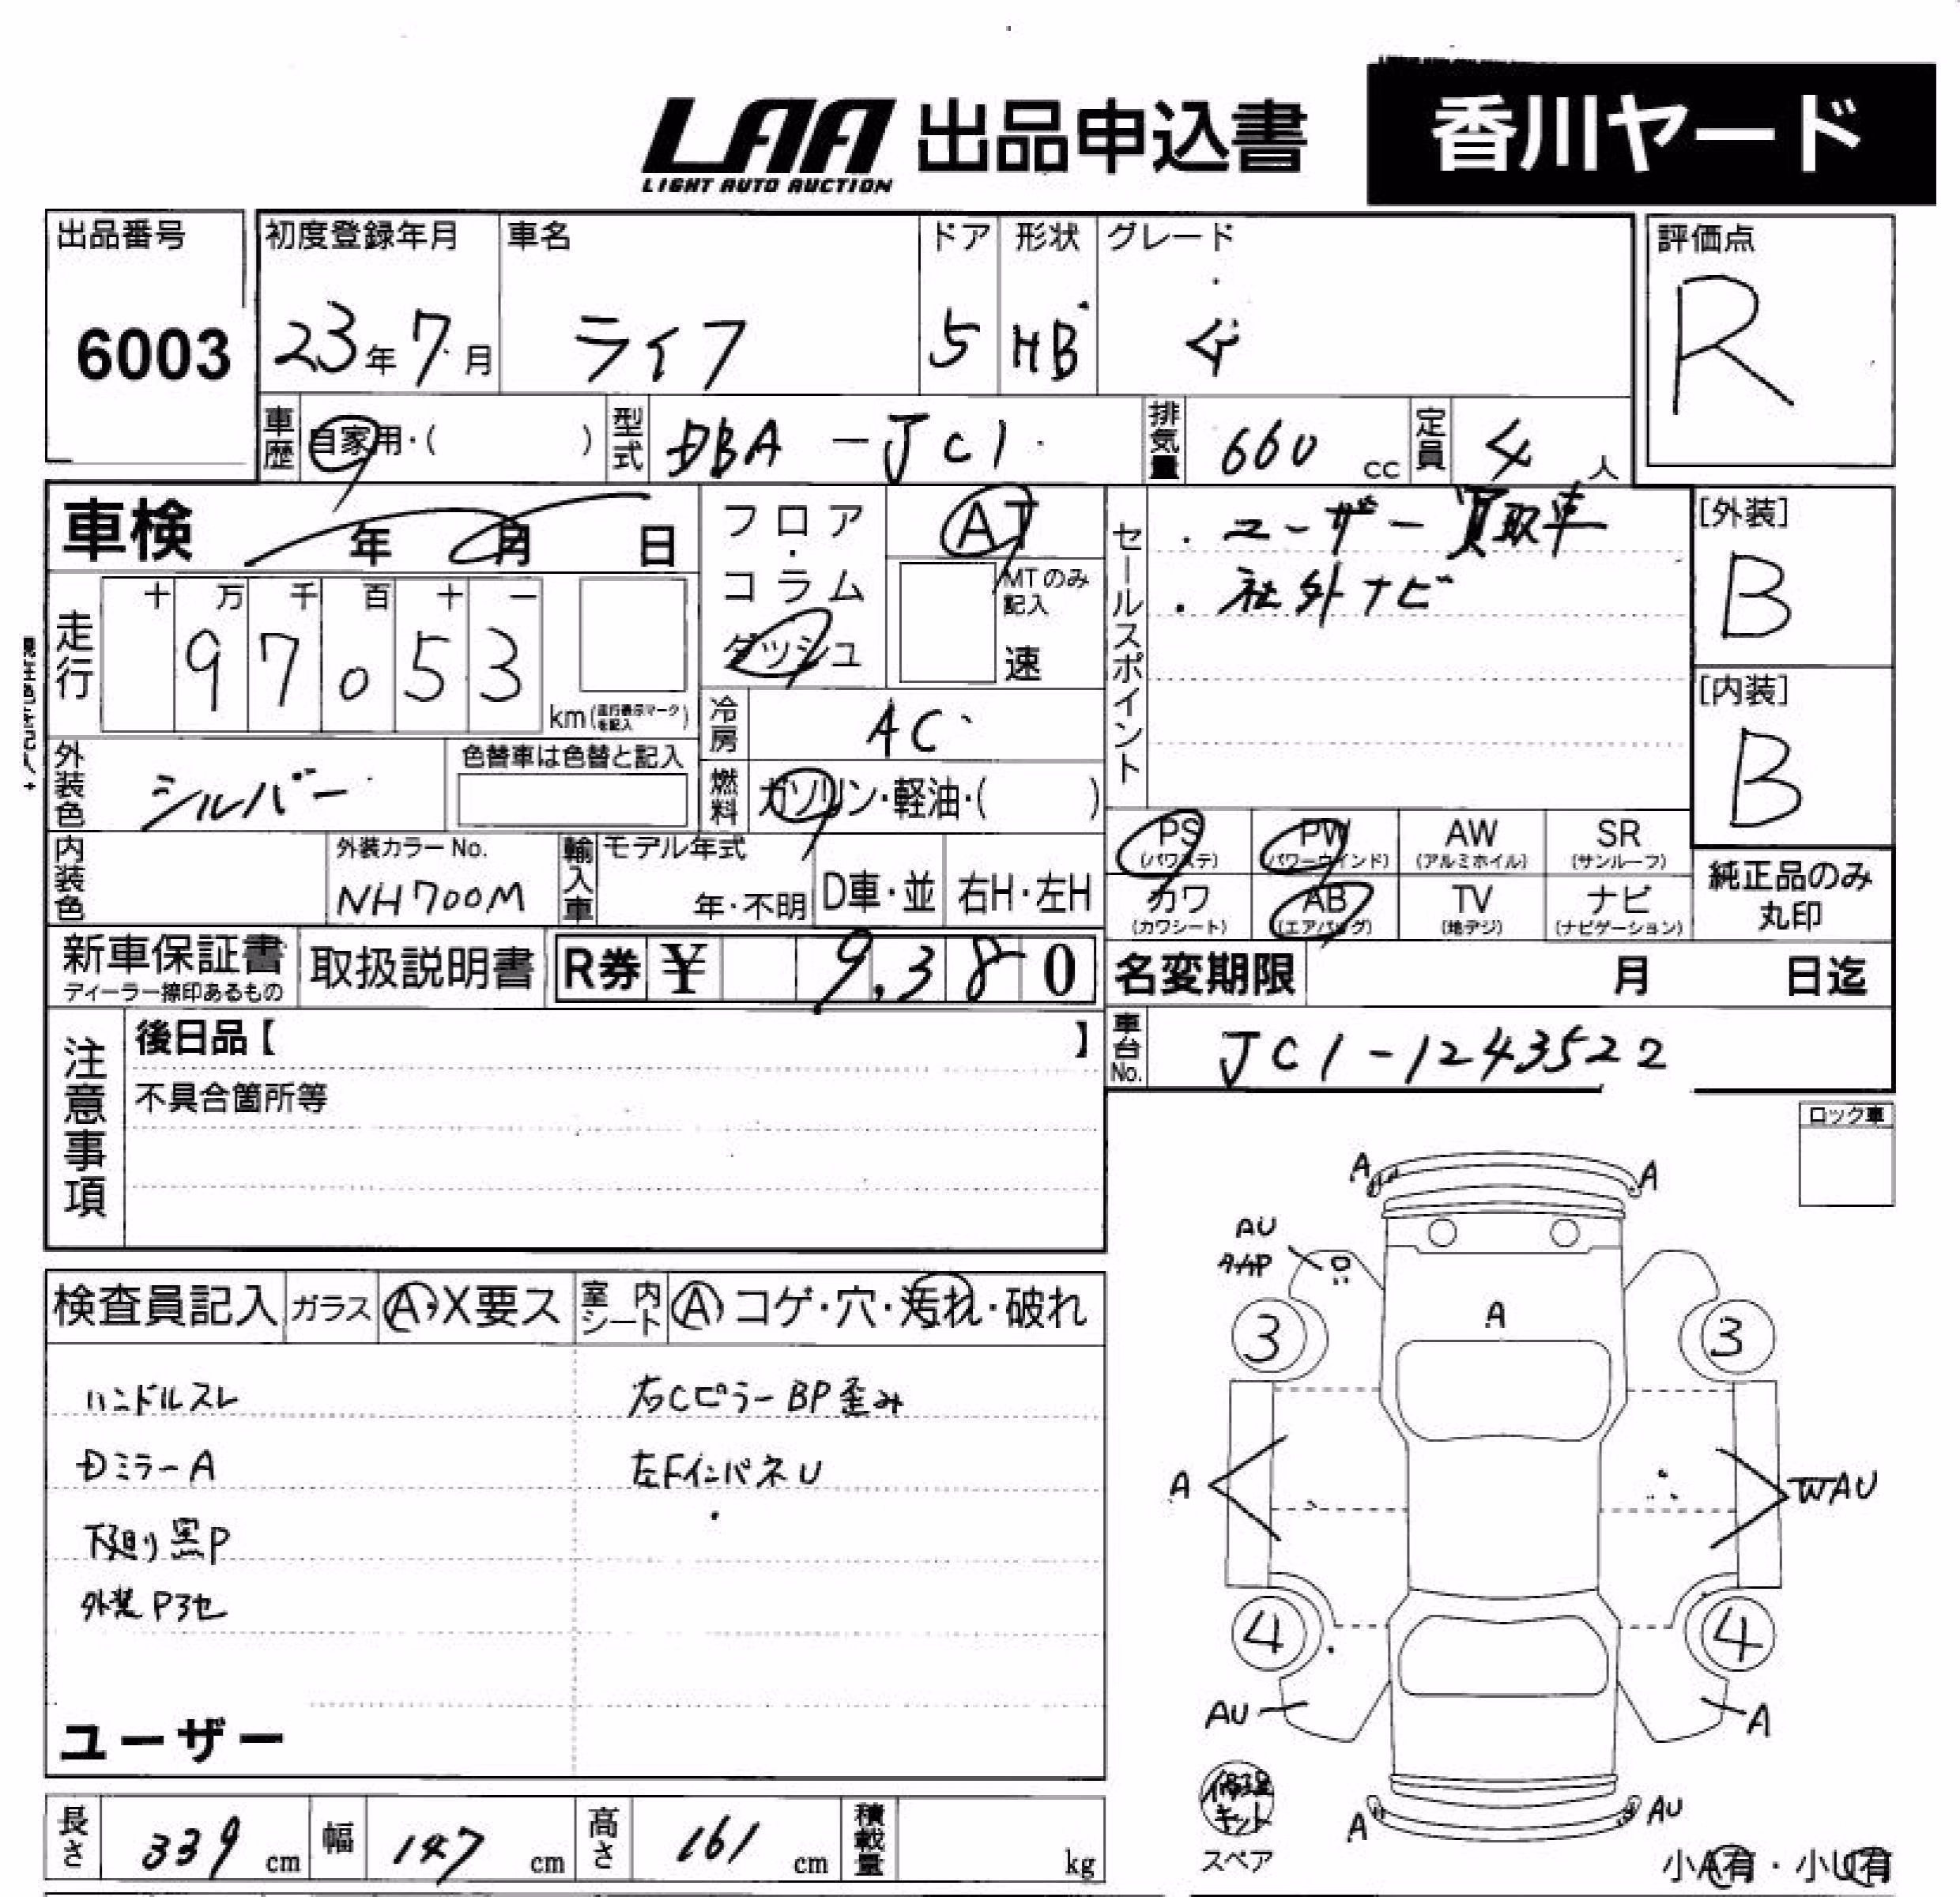 LAA 出品申込書 香川ヤード
LIGHT AUTO AUCTION
出品番号 初度登録年月 車名 ドア 形状 グレード 評価点
6003 23年7月 ライフ 5 HB R
車歴 自家用・( ) 型式 DBA-JC1 排気量 660 cc 定員 4 人
車検 年 月 日
フロア・コラム
ダッシュ
AT
MTのみ記入
速
セールスポイント
・ユーザー買取車
・社外ナビ
[外装]
B
[内装]
B
走行 十 万 千 百 十 一
97053
km(走行表示マークを記入)
冷房 AC
外装色 シルバー 色替車は色替と記入
燃料 ガソリン・軽油・( )
内装色 外装カラーNo. NH700M
輸入車 モデル年式 年・不明 D車・並 右H・左H
PS (パワステ) PW (パワーウインド) AW (アルミホイル) SR (サンルーフ)
カワ (カワシート) AB (エアバッグ) TV (地デジ) ナビ (ナビゲーション)
純正品のみ
丸印
新車保証書 取扱説明書 R券 ¥ 9,380
ディーラー捺印あるもの
名変期限 月 日迄
注意事項
後日品【 】
不具合箇所等
車台No. JC1-1243522
ロック車
検査員記入 ガラス A・X要ス 室内シート A コゲ・穴・汚れ・破れ
ハンドルスレ 右CピラーBP歪み
Dミラー A 左FインパネU
下廻り黒P
外装P3セ
ユーザー
A A
AU
A
3 3
A WAU
4 4
AU A
修理キット
スペア
A AU
小A有・小U有
長さ 339 cm 幅 147 cm 高さ 161 cm 積載量 kg